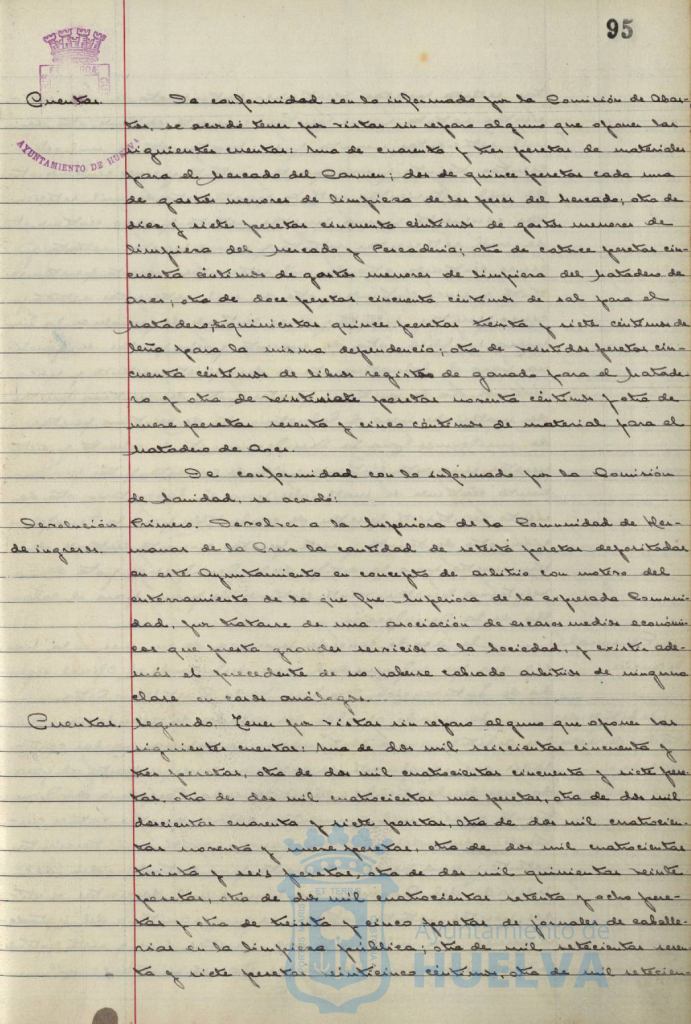 95
Cuentas. De conformidad con lo informado por la Comisión de Abas-
tos, se acordó tener por vistas sin reparo alguno que oponer las
AYUNTAMIENTO DE HUELVA
siguientes cuentas: una de cuarenta y tres pesetas de materiales
para el Mercado del Carmen; dos de quince pesetas cada una
de gastos menores de limpieza de los pesos del Mercado; otra de
diez y siete pesetas cincuenta céntimos de gastos menores de
limpieza del Mercado y Pescadería; otra de catorce pesetas cin-
cuenta céntimos de gastos menores de limpieza del Matadero de
Aves; otra de doce pesetas cincuenta céntimos de sal para el
Matadero; quinientas quince pesetas treinta y siete céntimos de
leña para la misma dependencia; otra de veintidos pesetas cin-
cuenta céntimos de libros registros de ganado para el Matade-
ro y otra de veintisiete pesetas noventa céntimos y otra de
nueve pesetas sesenta y cinco céntimos de material para el
Matadero de Aves.
De conformidad con lo informado por la Comisión
de Sanidad, se acordó:
Devolución Primero. Devolver a la Superiora de la Comunidad de Her-
de ingresos. manas de la Cruz la cantidad de setenta pesetas depositadas
en este Ayuntamiento en concepto de arbitrio con motivo del
enterramiento de la que fue Superiora de la expresada Comuni-
dad, por tratarse de una asociación de escasos medios económi-
cos que presta grandes servicios a la Sociedad, y existir ade-
más el precedente de no haberse cobrado arbitrios de ninguna
clase en casos análogos.
Cuentas. Segundo. Tener por vistas sin reparo alguno que oponer las
siguientes cuentas: una de dos mil seiscientas cincuenta y
tres pesetas, otra de dos mil cuatrocientas cincuenta y siete pese-
tas, otra de dos mil cuatrocientas una pesetas, otra de dos mil
doscientas cuarenta y siete pesetas, otra de dos mil cuatrocien-
tas noventa y nueve pesetas, otra de dos mil cuatrocientas
treinta y seis pesetas, otra de dos mil quinientas veinte
pesetas, otra de dos mil cuatrocientas setenta y ocho pese-
tas y otra de treinta y cinco pesetas de jornales de caballe-
rías en la limpieza pública; otra de mil setecientas sesen-
ta y siete pesetas veinticinco céntimos, otra de mil setecien-
Ayuntamiento de
HUELVA